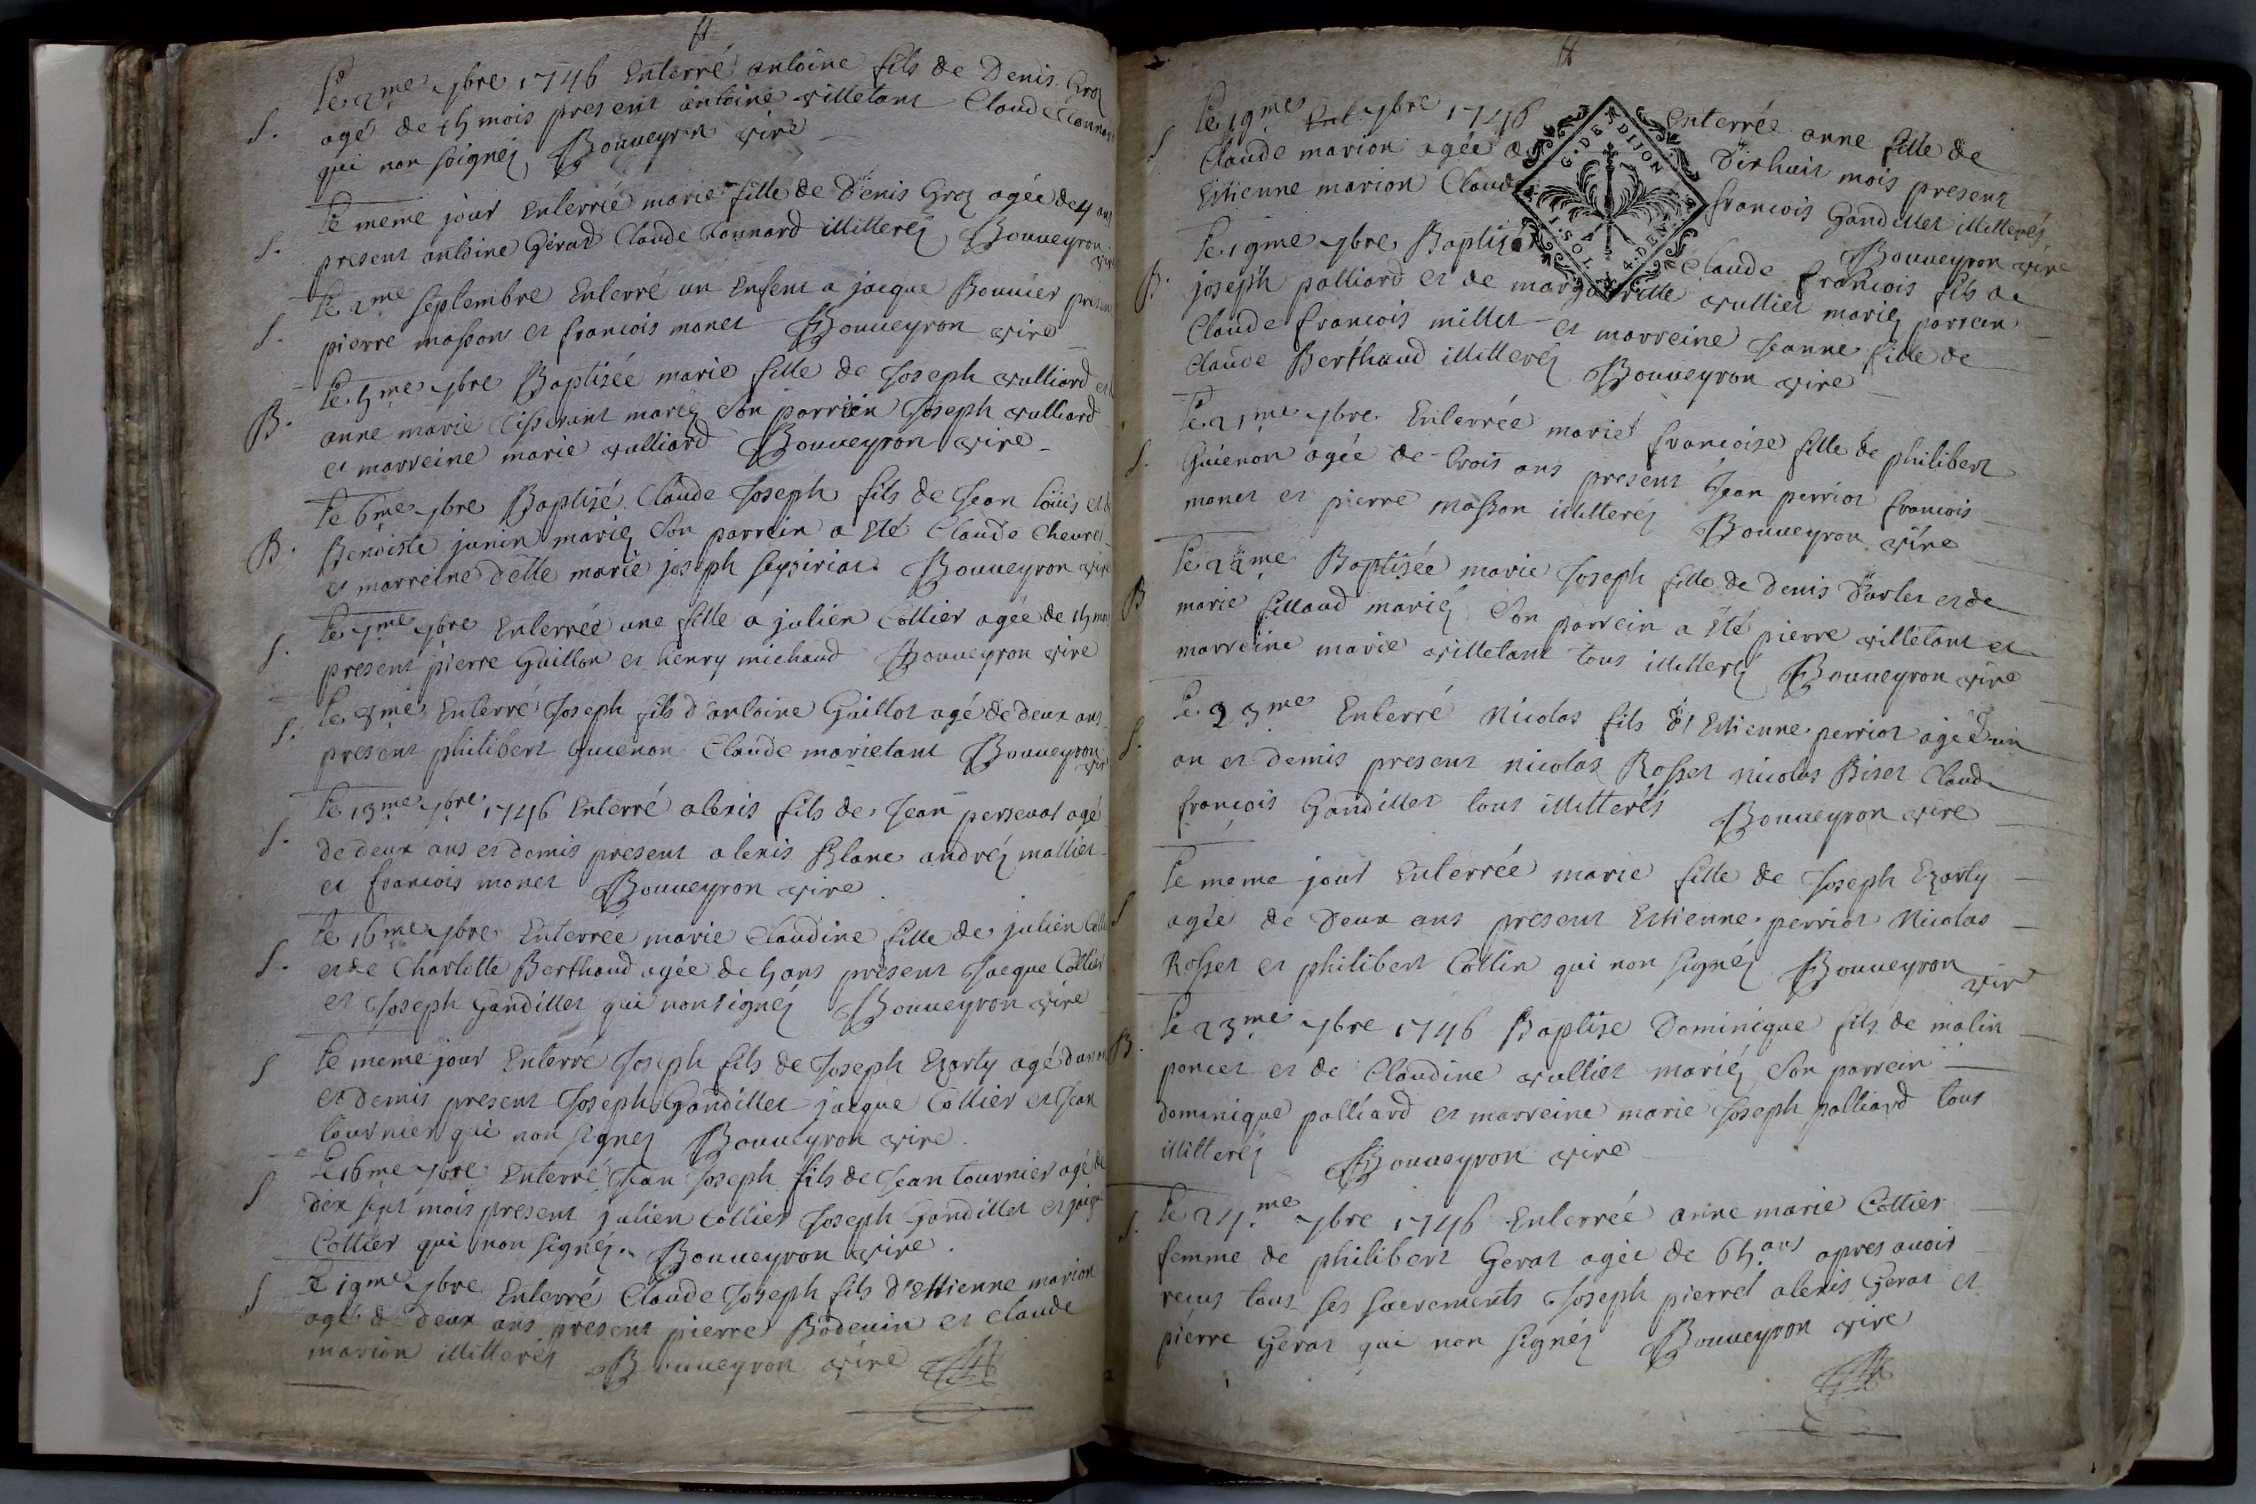 Le 2me 7bre 1746 Enterré antoine fils de Denis Groz
S. agé de 15 mois present antoine villetant Claude Connard
qui non soignez Bouveyron vire
Le meme jour Enterrée marie fille de Denis Groz agée de 4 ans
S. present antoine Gerard Claude Connard illitterez Bouveyron
vire
Le 2me septembre Enterré un Enfent a jacque Bouvier present
S. pierre masson et francois monet Bouveyron vire
Le 5me 7bre Baptisée marie fille de Joseph vulliard et
B. anne marie Tisserant mariez Son parrein Joseph vulliard
et marreine marie vulliard Bouveyron vire
Le 6me 7bre Baptisé Claude Joseph fils de Jean Loüis et de
B. Benoiste junin mariez Son parrein a Eté Claude Chevret
et marreine delle marie joseph seysiriat Bouveyron vire
Le 7me 7bre Enterrée une fille a julien Collier agée de 15 mois
S. present pierre Guillon et henry michaud Bouveyron vire
Le 8me Enterré Joseph fils d'antoine Guillot agé de deux ans
S. present philibert Guienon Claude marietant Bouveyron
vire
Le 13me 7bre 1746 Enterré alexis fils de Jean perseval agé
S. de deux ans et demis present alexis Blanc andréz mallier
et francois monet Bouveyron vire
Le 16me 7bre Enterrée marie Claudine fille de julien Collier
S. et de Charlotte Berthaud agée de 5 ans present Jacque Collier
et Joseph Gandillet qui non signéz Bouveyron vire
S Le meme jour Enterré Joseph fils de Joseph Ezarty agé d'un an
et demis present Joseph Gandillet jacque Collier et Jean
tournier qui non signez Bouveyron vire
Le 16me 7bre Enterré Jean Joseph fils de Jean tournier agé de
S dix sept mois present julien Collier Joseph Gandillet et jacque
Collier qui non signéz Bouveyron vire
S Le 19me 7bre Enterré Claude Joseph fils d'Ettienne marion
agé de deux ans present pierre Bodevin et claude
marion illitterez Bouveyron vire
Le 19me 7bre 1746 Enterrée anne fille de
S Claude marion agée de Dixhuit mois present
Ettienne marion Claude francois Gandillet illitterés
Bouveyron vire
G. DE DIJON
1. SOL. 4. DEN.
Le 19me 7bre Baptisé Claude francois fils de
B. joseph palliard et de margueritte vullier mariez parrein
Claude francois millet et marreine Jeanne fille de
Claude Berthaud illitteréz Bouveyron vire
Le 21me 7bre Enterrée marie francoise fille de philibert
S. Guienon agée de trois ans present Jean perriot francois
monet et pierre masson illitteréz Bouveyron vire
Le 22me Baptisée marie Joseph fille de Denis Darlet et de
B marie fillaud mariéz Son parrein a Eté pierre villetant et
marreine marie villetant tous illitteréz Bouveyron vire
Le 23me Enterré Nicolas fils d'Ettienne perriot agé d'un
S. an et demis present nicolas Rosset nicolas Biset Claude
francois Gandillet tous illitterés Bouveyron vire
Le meme jour Enterrée marie fille de Joseph Ezarty
S agée de Deux ans present Ettienne perriot Nicolas
Rosset et philibert Collin qui non signéz Bouveyron
vire
Le 23me 7bre 1746 Baptise Dominique fils de malin
B. poncet et de Claudine vullier mariéz Son parrein
dominique palliard et marreine marie Joseph palliard tous
illitteréz Bouveyron vire
Le 24me 7bre 1746 Enterrée anne marie Collier
S. femme de philibert Gerat agée de 65 ans apres avoir
recus tous ses sacrements Joseph pierret alexis Gerat et
pierre Gerat qui non signéz Bouveyron vire